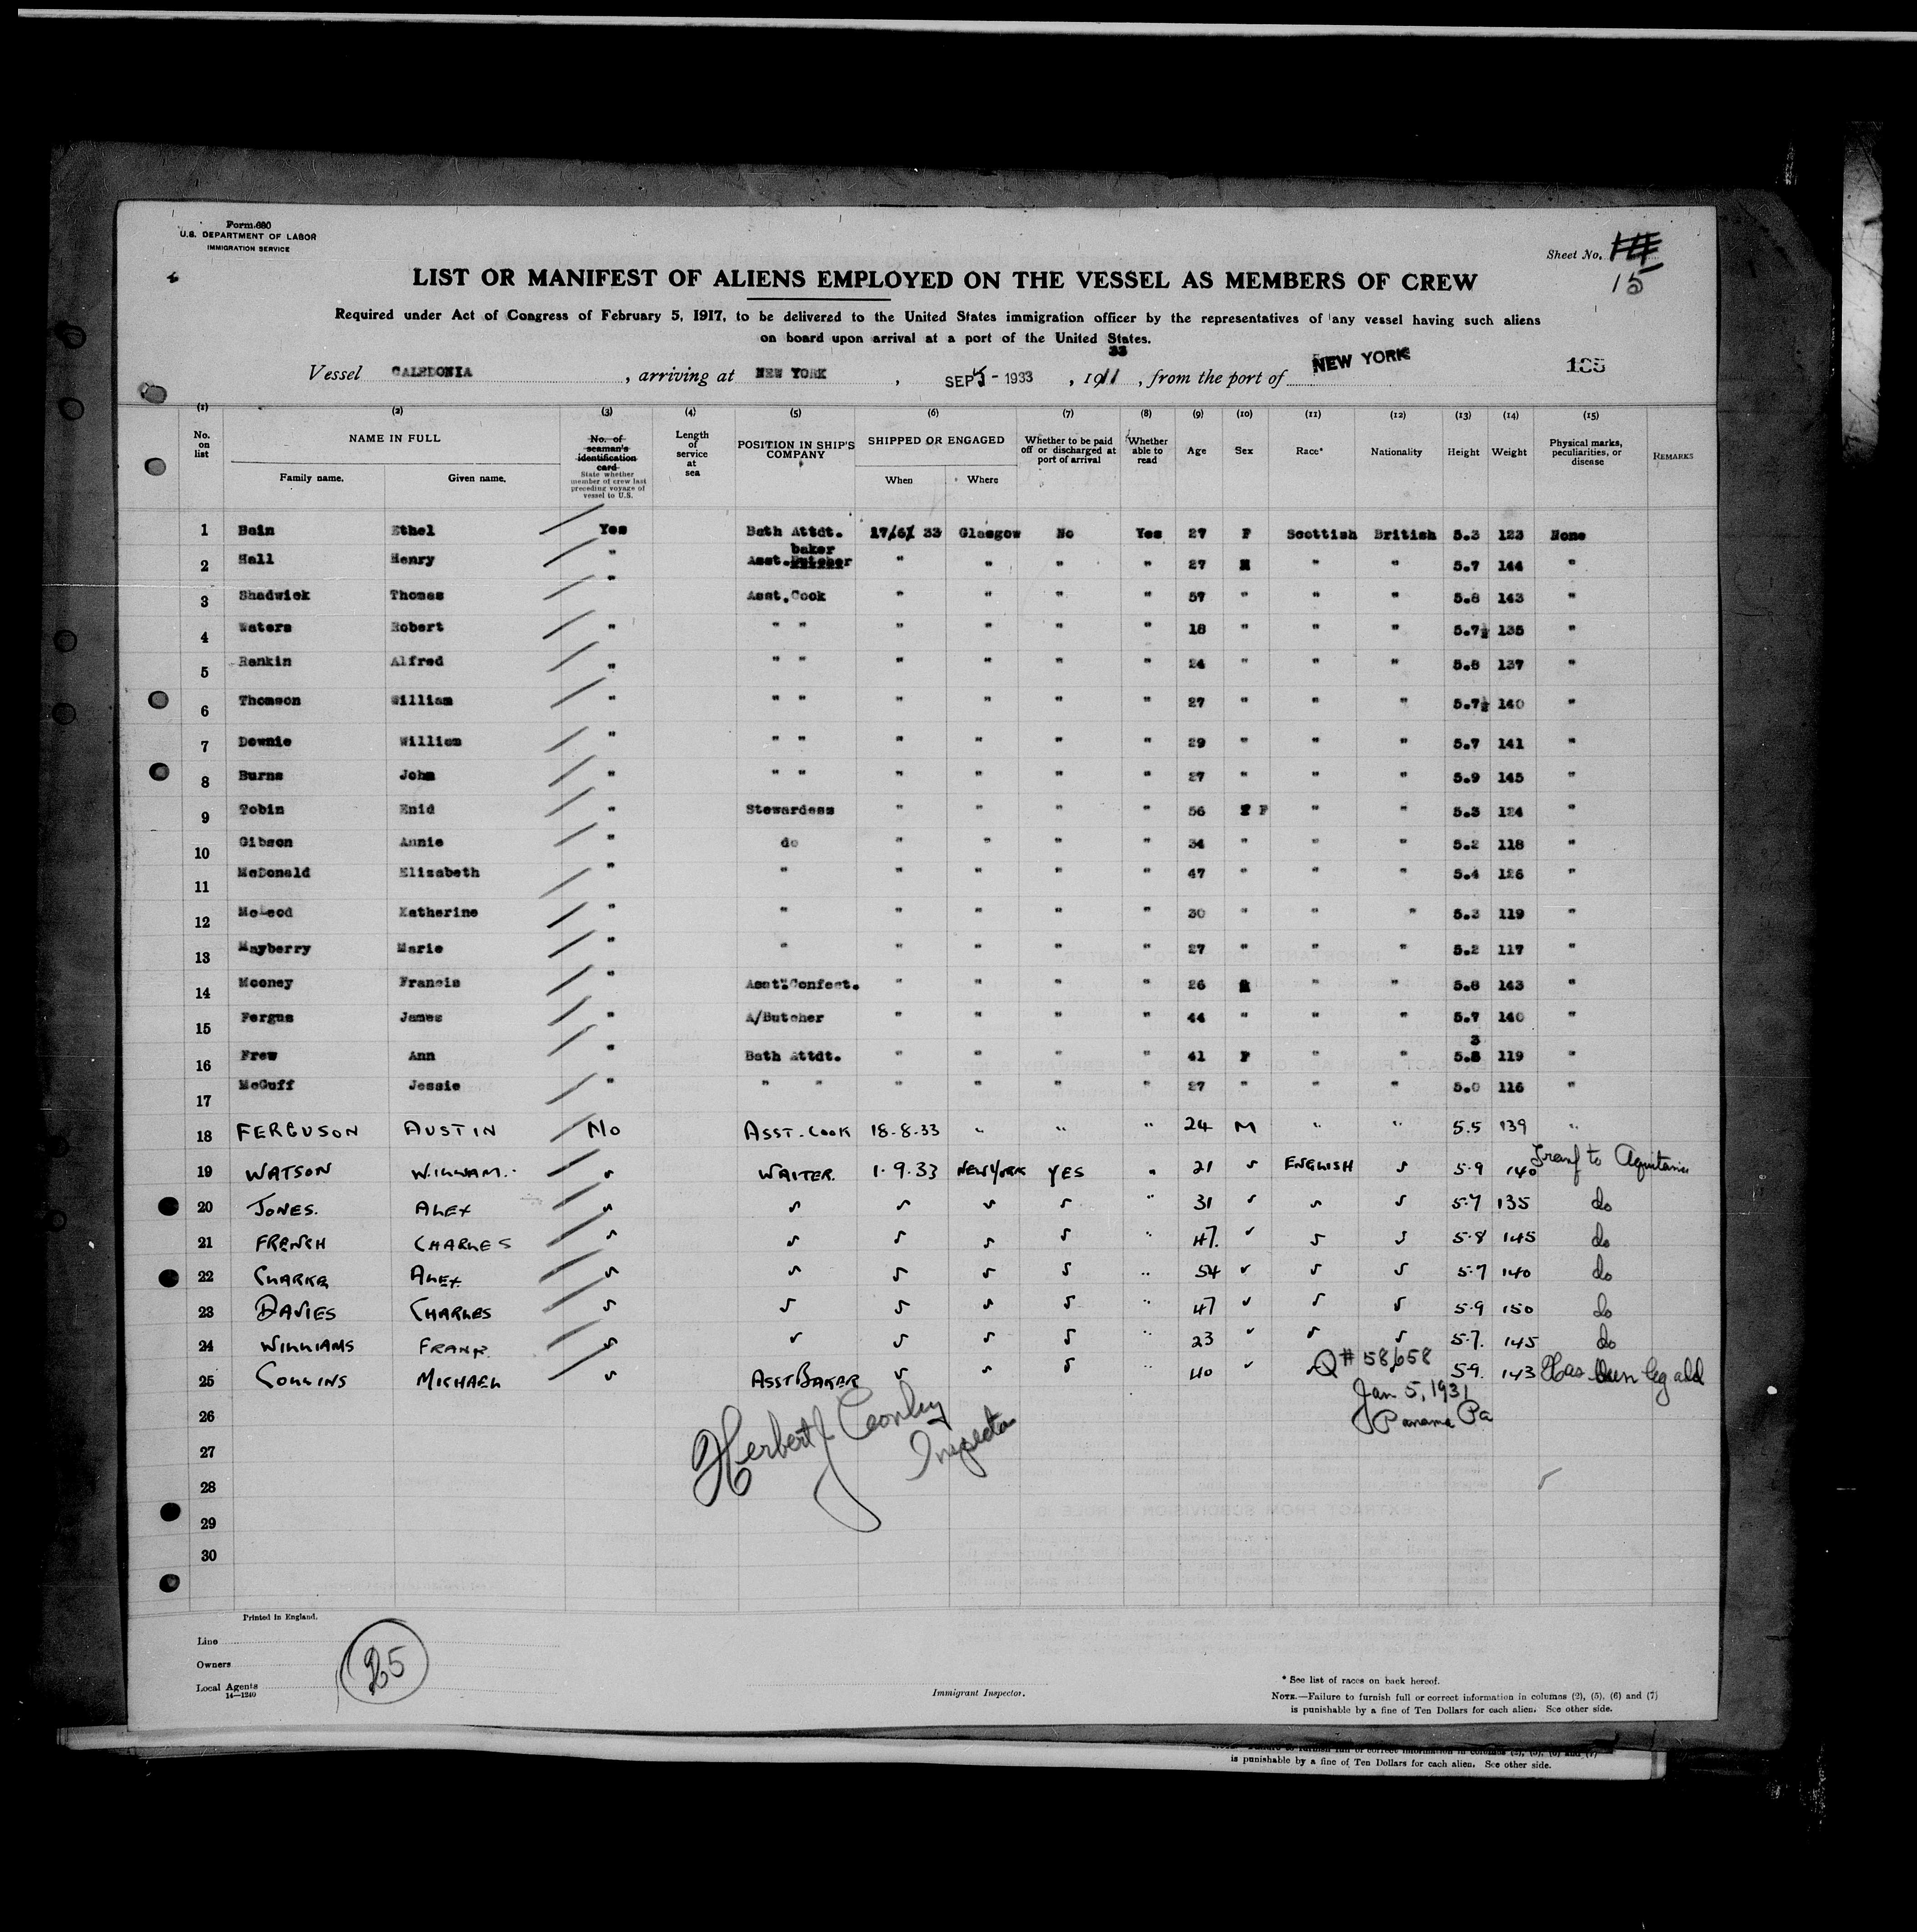 Form 680
U.S. DEPARTMENT OF LABOR
IMMIGRATION SERVICE
Sheet No. 14
15
LIST OR MANIFEST OF ALIENS EMPLOYED ON THE VESSEL AS MEMBERS OF CREW
Required under Act of Congress of February 5, 1917, to be delivered to the United States immigration officer by the representatives of any vessel having such aliens
on board upon arrival at a port of the United States.
33
Vessel CALEDONIA , arriving at NEW YORK , SEP 5 - 1933 , 1911 , from the port of NEW YORK 185
(1) (2) (3) (4) (5) (6) (7) (8) (9) (10) (11) (12) (13) (14) (15)
No. on list NAME IN FULL Family name. Given name. No. of seaman's identification card State whether member of crew last preceding voyage of vessel to U.S. Length of service at sea POSITION IN SHIP'S COMPANY SHIPPED OR ENGAGED When Where Whether to be paid off or discharged at port of arrival Whether able to read Age Sex Race* Nationality Height Weight Physical marks, peculiarities, or disease REMARKS
1 Bain Ethel Yes Bath Attdt. 17/6/ 33 Glasgow No Yes 27 F Scottish British 5.3 123 None
baker
2 Hall Henry " Asst. Butcher " " " " 27 M " " 5.7 144 "
3 Shadwick Thomas " Asst. Cook " " " " 57 " " " 5.8 143 "
4 Waters Robert " " " " " " " 18 " " " 5.7½ 135 "
5 Rankin Alfred " " " " " " " 24 " " " 5.8 137 "
6 Thomson William " " " " " " " 27 " " " 5.7½ 140 "
7 Downie William " " " " " " " 29 " " " 5.7 141 "
8 Burns John " " " " " " " 27 " " " 5.9 145 "
9 Tobin Enid " Stewardess " " " " 56 F " " 5.3 124 "
10 Gibson Annie " do " " " " 34 " " " 5.2 118 "
11 McDonald Elizabeth " " " " " " 47 " " " 5.4 126 "
12 McLeod Katherine " " " " " " 30 " " " 5.3 119 "
13 Mayberry Marie " " " " " " 27 " " " 5.2 117 "
14 Mooney Francis " Asst. Confect. " " " " 26 M " " 5.8 143 "
15 Fergus James " A/Butcher " " " " 44 " " " 5.7 140 "
3
16 Frew Ann " Bath Attdt. " " " " 41 F " " 5.8 119 "
17 McGuff Jessie " " " " " " " 27 " " " 5.0 116 "
18 FERGUSON AUSTIN No ASST. COOK 18.8.33 " " " 24 M " " 5.5 139 "
19 WATSON WILLIAM. " WAITER. 1.9.33 NEW YORK YES " 21 " ENGLISH " 5.9 140 Transf to Aquitania
20 JONES. ALEX " " " " " " 31 " " " 5.7 135 do
21 FRENCH CHARLES " " " " " " 47. " " " 5.8 145 do
22 CLARKE ALEX " " " " " " 54 " " " 5.7 140 do
23 DAVIES CHARLES " " " " " " 47 " " " 5.9 150 do
24 WILLIAMS FRANK " " " " " " 23 " " " 5.7. 145 do
25 COLLINS MICHAEL " ASST BAKER " " " " 40 " " Q# 58658 5.9. 143 Has been leg add
Jan 5, 1931
Panama Pa
26
27
28
29
30
Herbert J. Inspector
Printed in England.
Line
Owners
Local Agents
14—1240
25
Immigrant Inspector.
* See list of races on back hereof.
NOTE.—Failure to furnish full or correct information in columns (2), (5), (6) and (7)
is punishable by a fine of Ten Dollars for each alien. See other side.
is punishable by a fine of Ten Dollars for each alien. See other side.